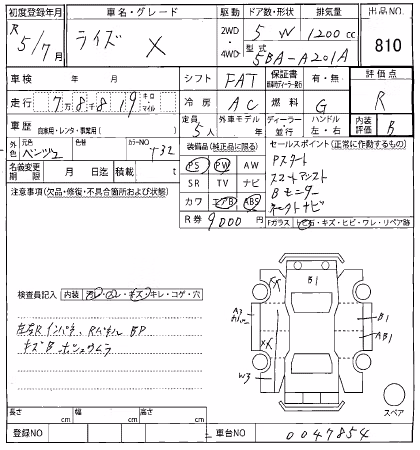 初度登録年月 車名・グレード 駆動 ドア数・形状 排気量 出品NO
R 5/7月 ライズ X 2WD・4WD 5 W 1200cc 810
型式 5BA-A201A
車検 年 月 シフト FAT 保証書 有・無 評価点
走行 7万8千819 キロ・マイル 冷房 AC 燃料 G R
車歴 自家用・レンタ・事業用( ) 定員 5人 外車モデル 年 ディーラー・並行 ハンドル 左・右 内装評価 B
外色 元色 色替 カラーNO T32 装備品(純正品に限る) セールスポイント(正常に作動するもの)
名義変更期限 月 日迄 積載 t PS PW AW Pスタート
注意事項(欠品・修復・不具合箇所および状態) SR TV ナビ スマートアシスト
カワ エアB ABS Bモニター
R券 9000円 コネクトナビ
Fガラス トビ石・キズ・ヒビ・ワレ・リペア跡
B1
A3
B1
AB1
W3
検査員記入 内装 汚レ・スレ・キズ・キレ・コゲ・穴
左右Rインパネ、Rパネル BP
スペア
長さ cm 幅 cm 高さ cm
登録NO 車台NO 0047854